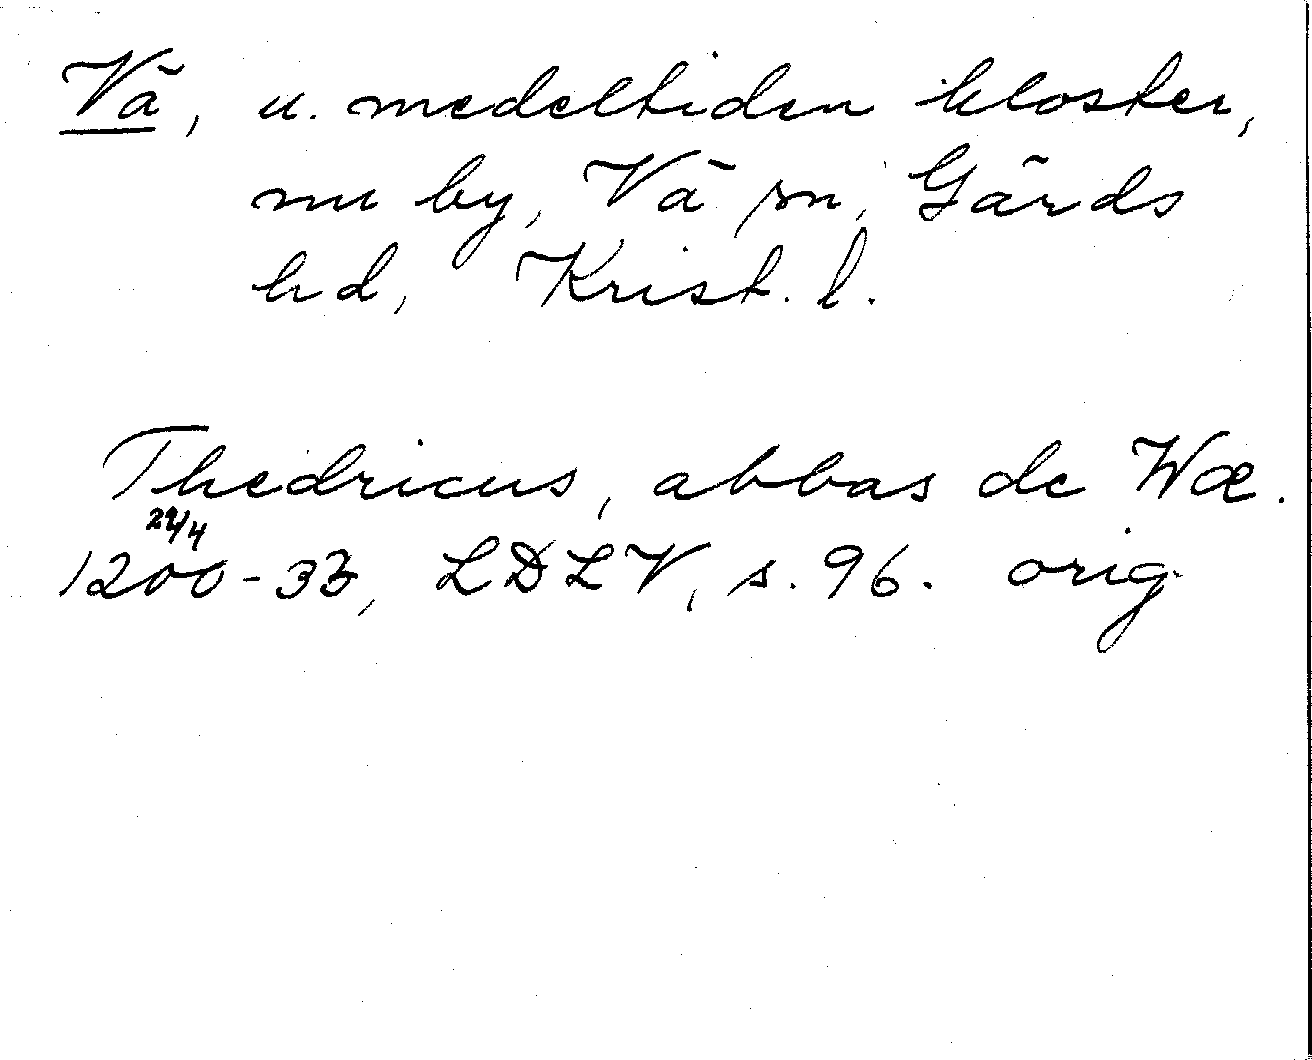 Vä, u. medeltiden kloster,
nu by, Vä sn, Gärds
hd, Krist. l.
Thedricus, abbas de Wæ.
29/4
1200-33, LDLV, s. 96. orig.